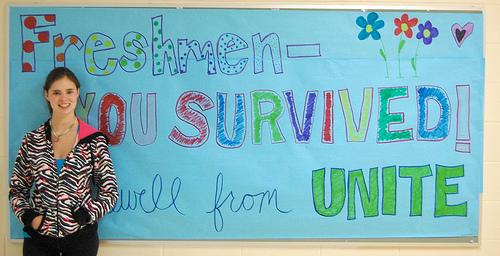 Freshmen-
YOU SURVIVED!
well from UNITE